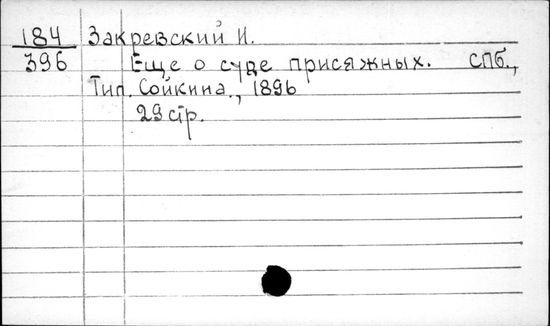 184 Закревский И.
396 Еще о суде присяжных. СПб.,
Тип. Сойкина., 1896
29 стр.